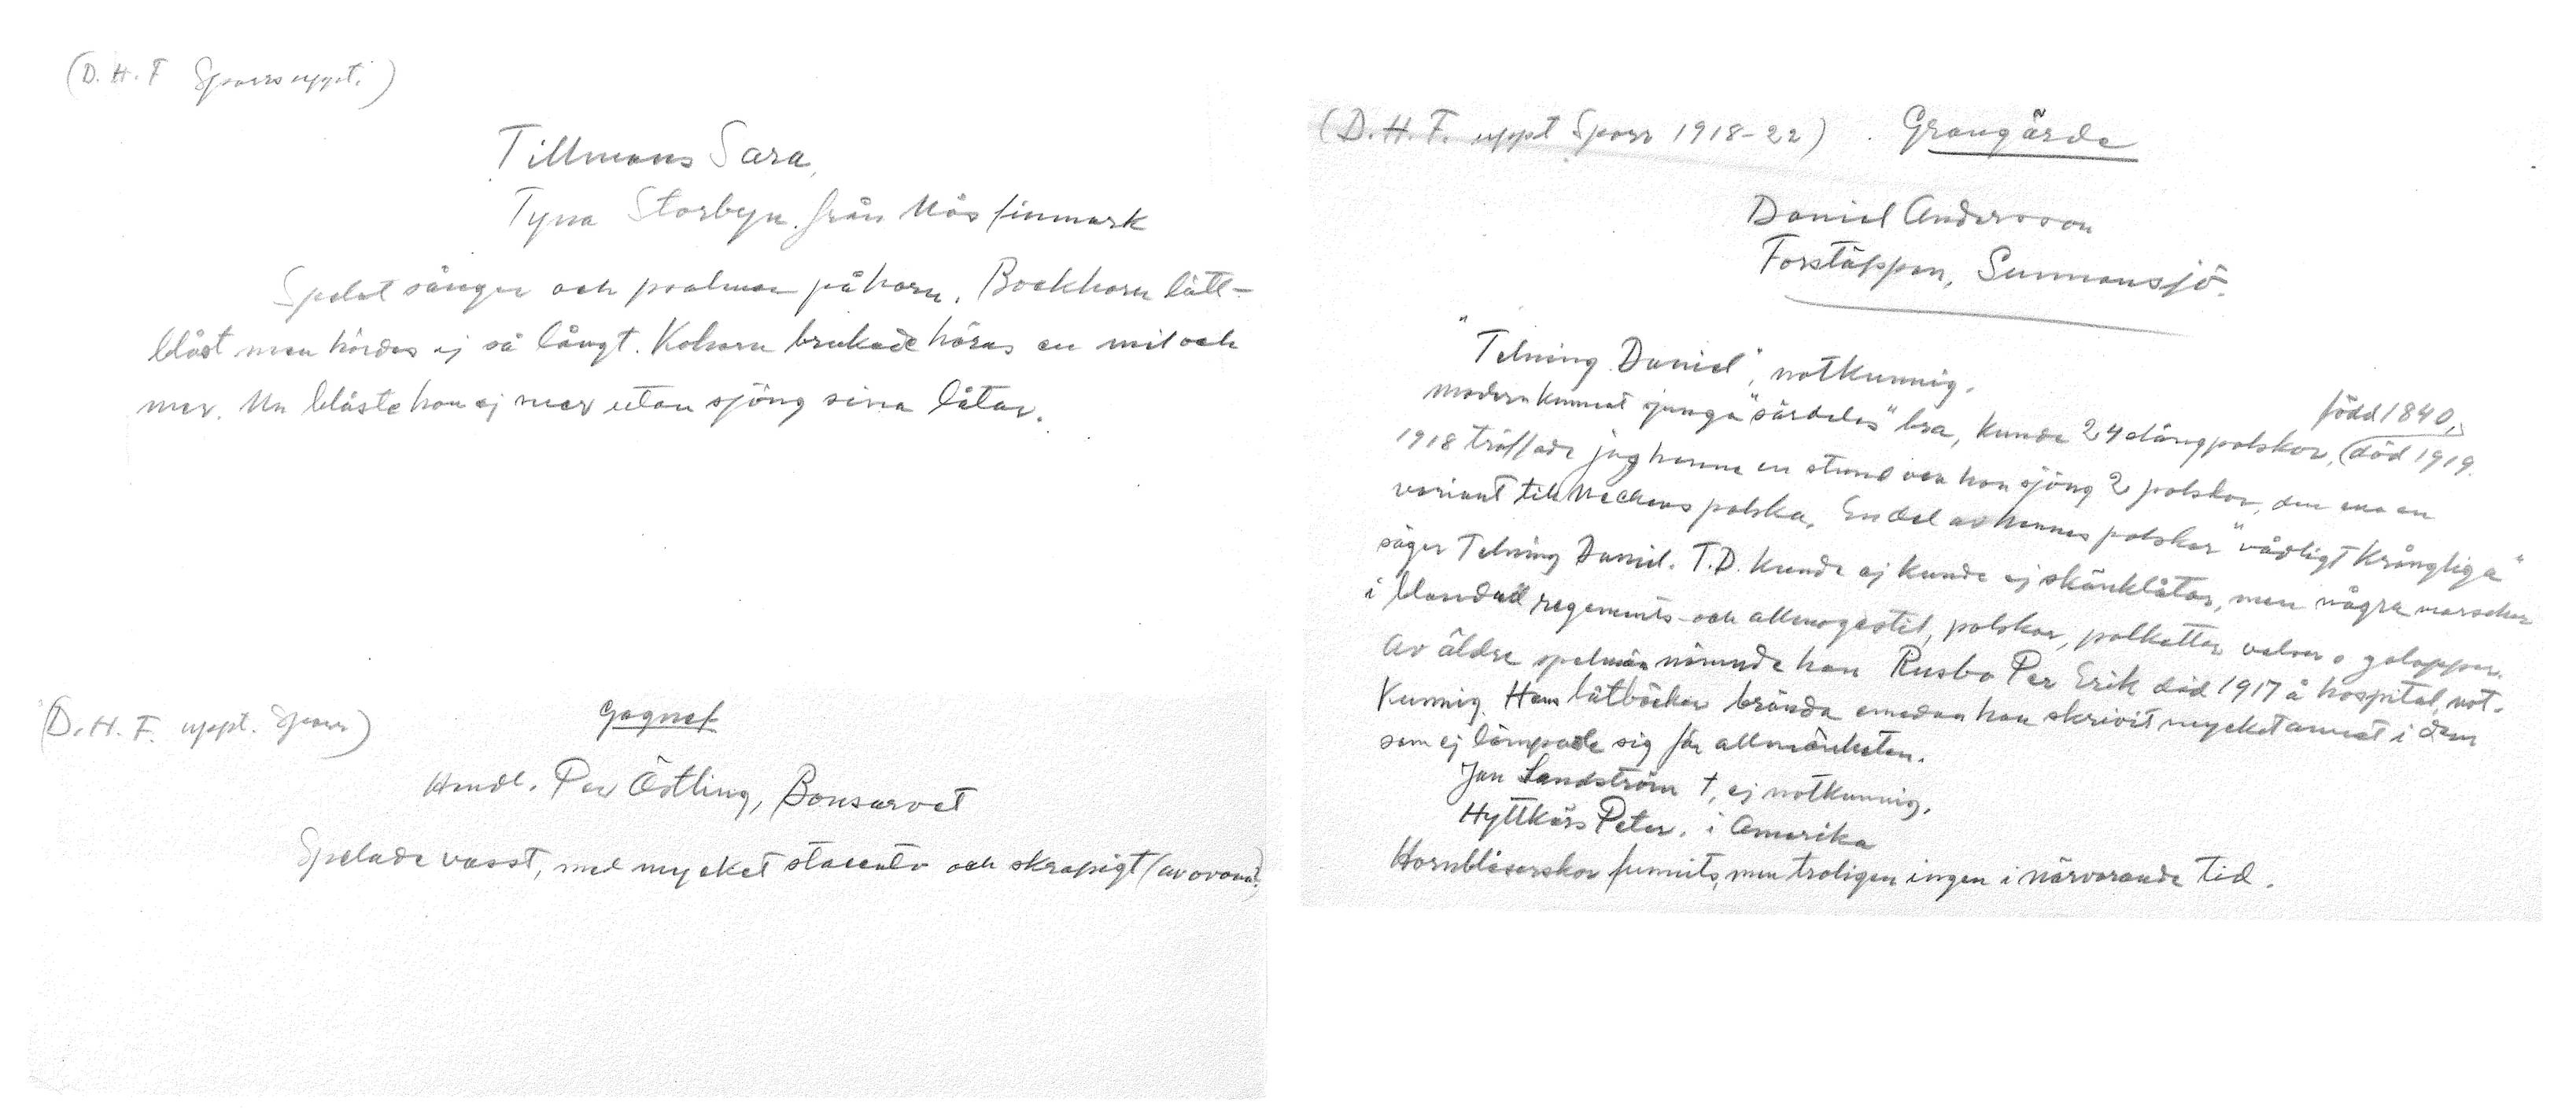 (D. H. F Sporrs uppt.)
Tillmans Sara,
Tyna Storbyn från Nås finmark
Spelat sånger och psalmer på horn. Bockhorn lätt-
blåst men hördes ej så långt. Kohorn brukade höras en mil och
mer. Nu blåste hon ej mer utan sjöng sina låtar.
(D. H. F. uppt. Sporr)
Gagnef
Handl. Per Östling, Bonsarvet
Spelade vasst, med mycket staccato och skrapigt (av ovana?)
(D. H. F. uppt Sporr 1918-22) . Grangärde
Daniel Andersson
Forstäppan, Sunnansjö.
"Telning Daniel", notkunnig.
född 1840,
Modern kunnat sjunga "särdeles" bra, kunde 24 slängpolskor, (död 1919.
1918 träffade jag henne en stund och hon sjöng 2 polskor, den ena en
variant till Neckens polska. En del av hennes polskor "vådligt krångliga"
säger Telning Daniel. T.D. kunde ej kunde ej skänklåtar, men några marscher
i blandad regements- och allmogestil, polskor, polketter valser o galopper.
Av äldre spelmän nämnde han Rusbo Per Erik död 1917 å hospital, not-
kunnig. Hans låtböcker brända emedan han skrivit mycket annat i dem
som ej lämpade sig för allmänheten.
Jan Sandström †, ej notkunnig.
Hyttkärs Peter. i Amerika
Hornblåserskor funnits, men troligen ingen i närvarande tid.